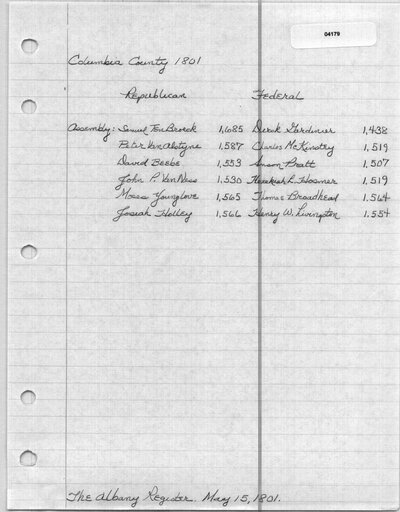 04179
Columbia County 1801
Republican Federal
Assembly: Samuel Ten Broeck 1,685 Derick Gardinier 1,438
Peter Van Alstyne 1,587 Charles McKinstry 1,519
David Beebe 1,553 Anson Pratt 1,507
John P. Van Ness 1,530 Hezekiah L. Hosmer 1,519
Moses Younglove 1,565 Thomas Broadhead 1,564
Josiah Holley 1,566 Henry W. Livingston 1,554
The Albany Register. May 15, 1801.